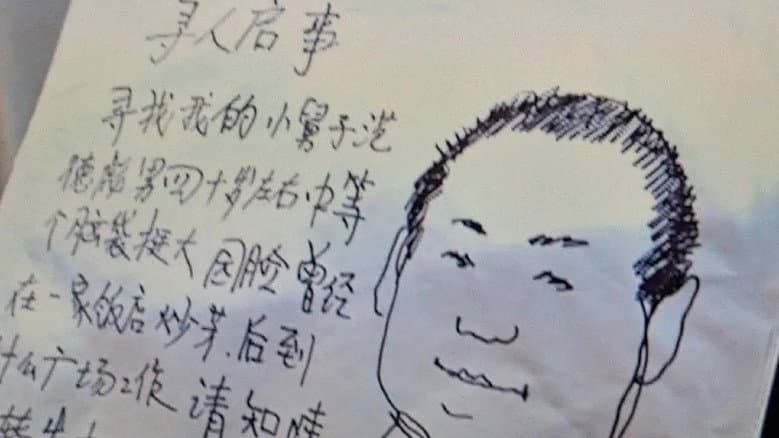 寻人启事
寻找我的小舅子范
德彪男四十岁左右中等
个脑袋挺大国脸曾经
在一家饭店炒菜.后到
什么广场工作请知情